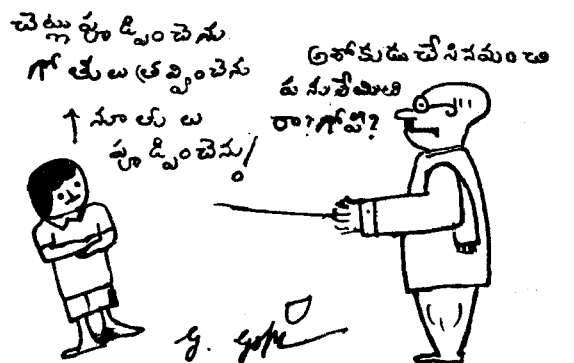 చెట్లు పూడ్పించెను
గోతులు త్రవ్వించెను
నూతులు
పూడ్పించెను!
అశోకుడు చేసినమంచి
పనులేమిటి
రా? గోపీ?
G. Gopi